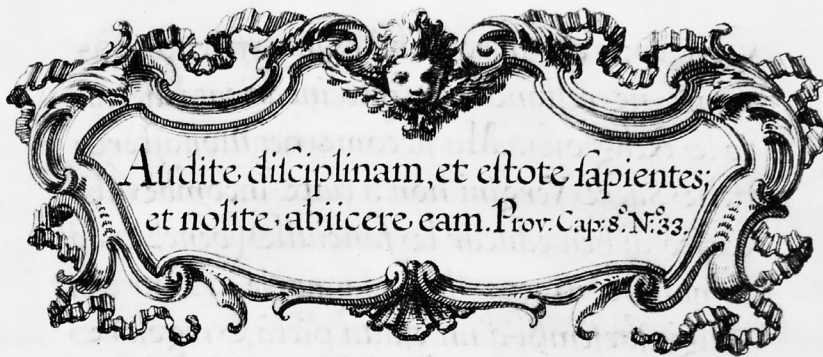 Audite diſciplinam, et eſtote ſapientes;
et nolite abiicere eam. Prov. Cap: 8.º N.º 33.